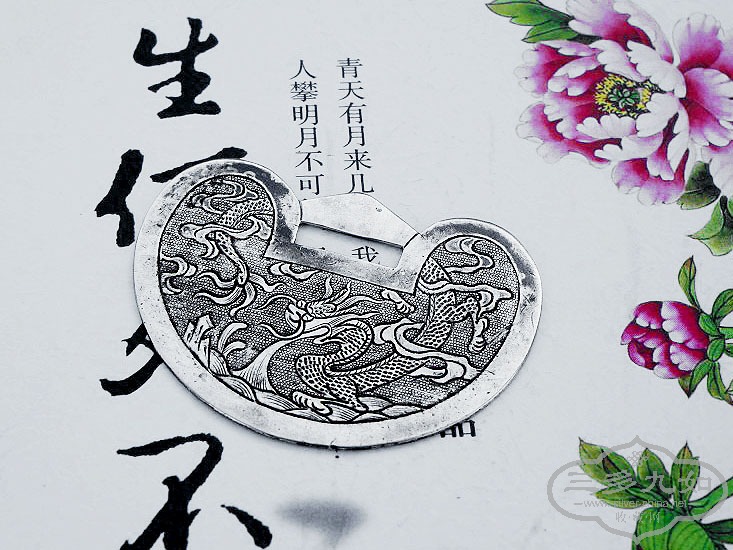 青天有月来几
我
人攀明月不可
一
生
不
品
三多九如
www.silver-china.net
收藏